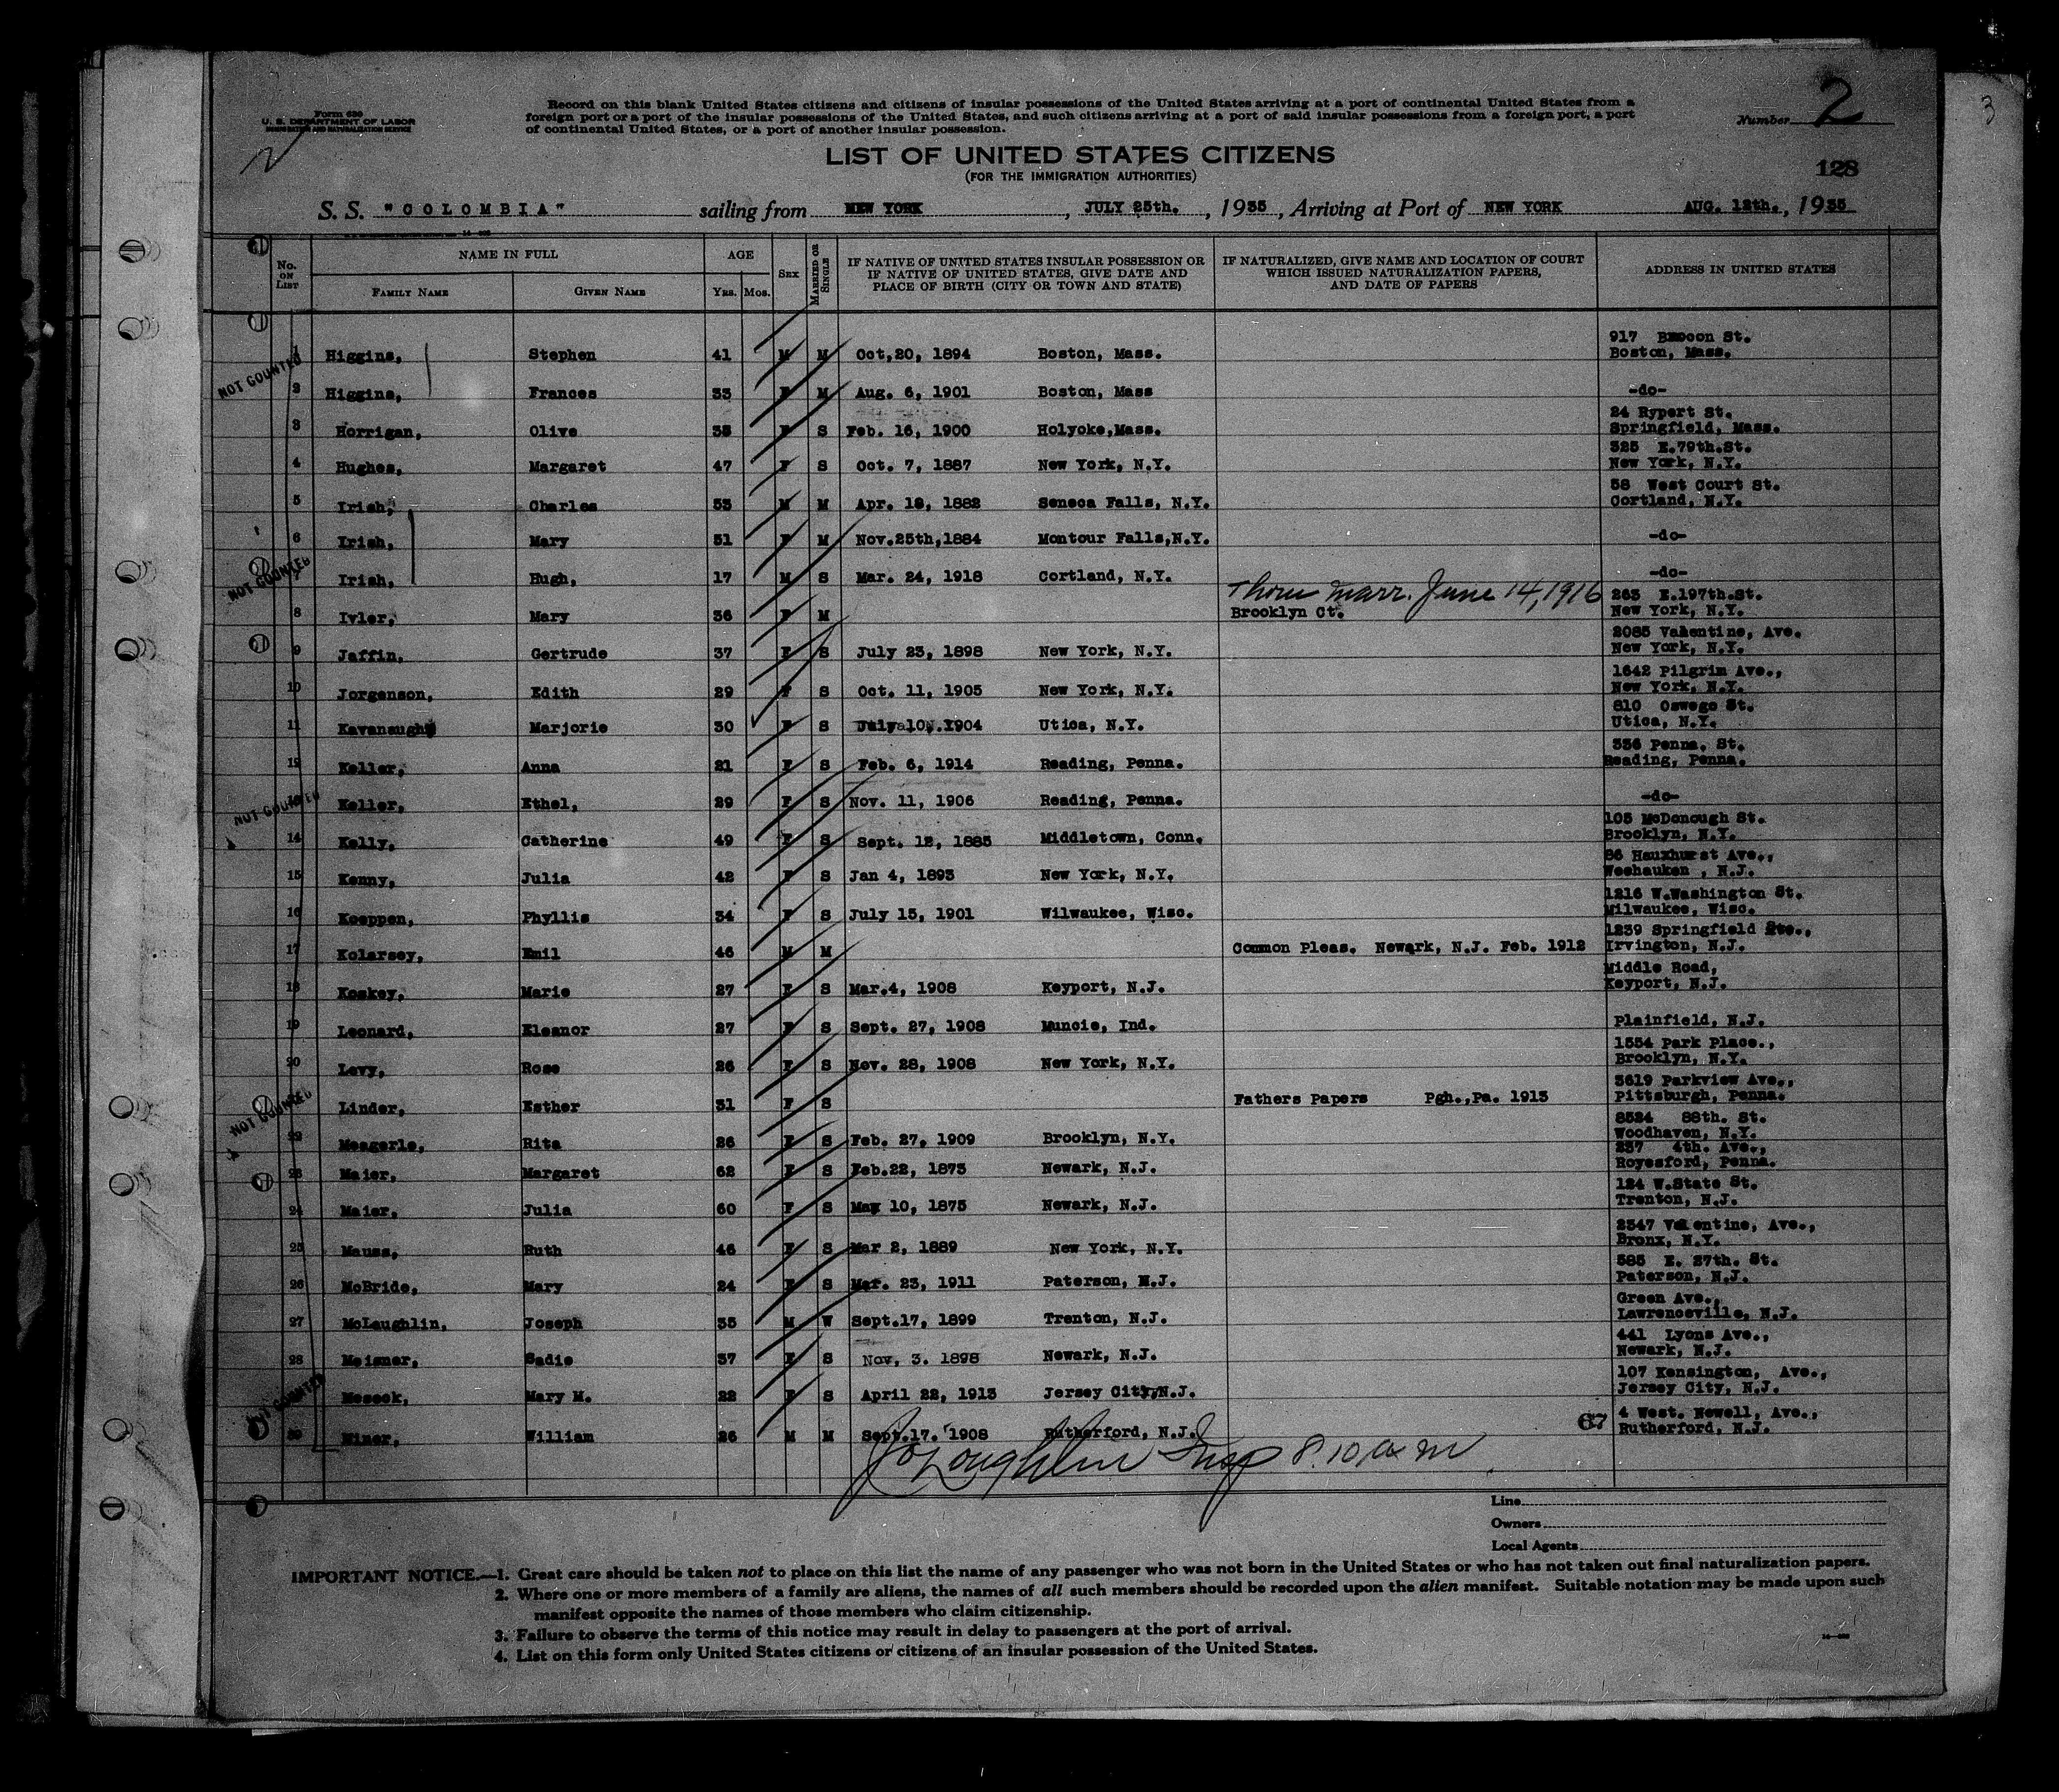 3
Form 630
U. S. DEPARTMENT OF LABOR
IMMIGRATION AND NATURALIZATION SERVICE
Record on this blank United States citizens and citizens of insular possessions of the United States arriving at a port of continental United States from a
foreign port or a port of the insular possessions of the United States, and such citizens arriving at a port of said insular possessions from a foreign port, a port
of continental United States, or a port of another insular possession.
Number 2
LIST OF UNITED STATES CITIZENS
(FOR THE IMMIGRATION AUTHORITIES)
128
S. S. "COLOMBIA" sailing from NEW YORK, JULY 25th., 1935, Arriving at Port of NEW YORK AUG. 12th., 1935
No. ON LIST NAME IN FULL AGE SEX MARRIED OR SINGLE IF NATIVE OF UNITED STATES INSULAR POSSESSION OR IF NATIVE OF UNITED STATES, GIVE DATE AND PLACE OF BIRTH (CITY OR TOWN AND STATE) IF NATURALIZED, GIVE NAME AND LOCATION OF COURT WHICH ISSUED NATURALIZATION PAPERS, AND DATE OF PAPERS ADDRESS IN UNITED STATES
FAMILY NAME GIVEN NAME YRS. MOS.
917 St.
1 Higgins, Stephen 41 M M Oct,20, 1894 Boston, Mass. Boston, Mass.
NOT COUNTED
2 Higgins, Frances 33 F M Aug. 6, 1901 Boston, Mass -do-
24 Rypert St.
3 Horrigan, Olive 35 F S Feb. 16, 1900 Holyoke,Mass. Springfield, Mass.
325 E.79th.St.
4 Hughes, Margaret 47 F S Oct. 7, 1887 New York, N.Y. New York, N.Y.
58 West Court St.
5 Irish, Charles 53 M M Apr. 18, 1882 Seneca Falls, N.Y. Cortland, N.Y.
6 Irish, Mary 51 F M Nov.25th,1884 Montour Falls,N.Y. -do-
NOT COUNTED
7 Irish, Hugh, 17 M S Mar. 24, 1918 Cortland, N.Y. -do-
marr. June 14, 1916 263 E.197th.St.
8 Ivler, Mary 36 F M Brooklyn Ct. New York, N.Y.
2085 Valentine, Ave.
9 Jaffin, Gertrude 37 F S July 23, 1898 New York, N.Y. New York, N.Y.
1642 Pilgrim Ave.,
10 Jorgenson, Edith 29 F S Oct. 11, 1905 New York, N.Y. New York, N.Y.
810 Oswego St.
11 Kavanaugh Marjorie 30 F S July 10, 1904 Utica, N.Y. Utica, N.Y.
336 Penna, St.
12 Keller, Anna 21 F S Feb. 6, 1914 Reading, Penna. Reading, Penna.
NOT COUNTED
13 Keller, Ethel, 29 F S Nov. 11, 1906 Reading, Penna. -do-
105 McDonough St.
14 Kelly, Catherine 49 F S Sept. 12, 1885 Middletown, Conn. Brooklyn, N.Y.
86 Hauxhurst Ave.,
15 Kenny, Julia 42 F S Jan 4, 1893 New York, N.Y. Weehauken , N.J.
1216 W.Washington St.
16 Koeppen, Phyllis 34 F S July 15, 1901 Wilwaukee, Wisc. Milwaukee, Wisc.
1239 Springfield
17 Kolarsey, Emil 46 M M Common Pleas. Newark, N.J. Feb. 1912 Irvington, N.J.
Middle Road,
18 Koskey, Marie 27 F S Mar.4, 1908 Keyport, N.J. Keyport, N.J.
19 Leonard, Eleanor 27 F S Sept. 27, 1908 Muncie, Ind. Plainfield, N.J.
1554 Park Place.,
20 Levy, Rose 26 F S Nov. 28, 1908 New York, N.Y. Brooklyn, N.Y.
3619 Parkview Ave.,
NOT COUNTED
Linder, Esther 31 F S Fathers Papers Pgh.,Pa. 1913 Pittsburgh, Penna.
8524 88th. St.
22 Meagerle, Rita 26 F S Feb. 27, 1909 Brooklyn, N.Y. Woodhaven, N.Y.
237 4th. Ave.,
23 Maier, Margaret 62 F S Feb.22, 1873 Newark, N.J. Royesford, Penna.
124 W.State St.
24 Maier, Julia 60 F S May 10, 1875 Newark, N.J. Trenton, N.J.
2347 Valentine, Ave.,
25 Mauss, Ruth 46 F S Mar 2, 1889 New York, N.Y. Bronx, N.Y.
585 E. 27th. St.
26 McBride, Mary 24 F S Mar. 23, 1911 Paterson, N.J. Paterson, N.J.
Green Ave.,
27 McLaughlin, Joseph 35 M W Sept.17, 1899 Trenton, N.J. Lawrenceville, N.J.
441 Lyons Ave.,
28 Meisner, Sadie 37 F S Nov. 3. 1898 Newark, N.J. Newark, N.J.
107 Kensington, Ave.,
NOT COUNTED
Meseck, Mary M. 22 F S April 22, 1913 Jersey City,N.J. Jersey City, N.J.
67 4 West. Newell, Ave.,
30 Miner, William 26 M M Sept.17. 1908 Rutherford, N.J. Rutherford, N.J.
J O'Loughlin Insp 8.10 a m
Line
Owners
Local Agents
IMPORTANT NOTICE.—1. Great care should be taken not to place on this list the name of any passenger who was not born in the United States or who has not taken out final naturalization papers.
2. Where one or more members of a family are aliens, the names of all such members should be recorded upon the alien manifest. Suitable notation may be made upon such
manifest opposite the names of those members who claim citizenship.
3. Failure to observe the terms of this notice may result in delay to passengers at the port of arrival.
4. List on this form only United States citizens or citizens of an insular possession of the United States.